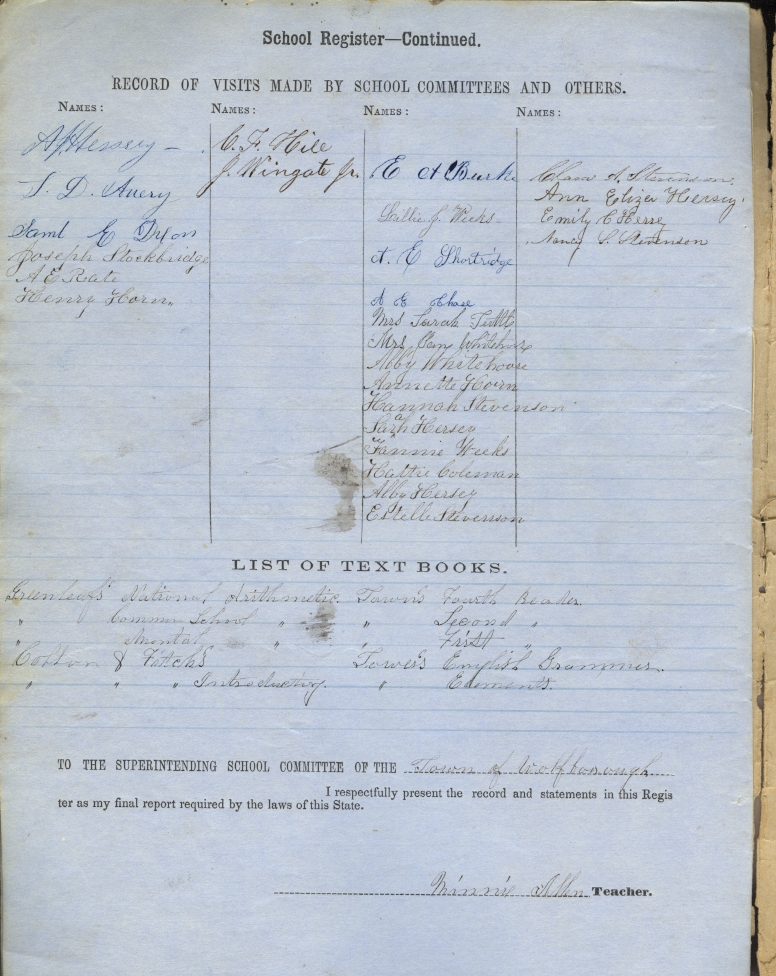 School Register—Continued.
RECORD OF VISITS MADE BY SCHOOL COMMITTEES AND OTHERS.
NAMES:
Hersey
S. D. Avery
Saml E Dixon
Joseph Stockbridge
A E Rate
Henry Horn
NAMES:
C. F. Hill
J. Wingate Jr.
NAMES:
E A Burke
Sallie J. Weeks
A. E Shortridge
A E Chase
Mrs Sarah Tuttl
Mrs
Abby Whitehouse
Annette Horn
Hannah Stevenson
Sarah Hersey
Fannie Weeks
Hattie Coleman
Abby Hersey
Estelle Stevenson
NAMES:
Clara A. Stevenson.
Ann Eliza Hersey
Emily C
Nancy S. Stevenson
LIST OF TEXT BOOKS.
Greenleaf's National Arithmetic.
" Common School "
" Mental "
Colton & Fitch's
" " " Introductory.
Town's Fourth Reader.
" Second "
" First "
Tower's English Grammer.
" Elments.
TO THE SUPERINTENDING SCHOOL COMMITTEE OF THE Town of Wolfborough
I respectfully present the record and statements in this Regis
ter as my final report required by the laws of this State.
Minnie Allen Teacher.